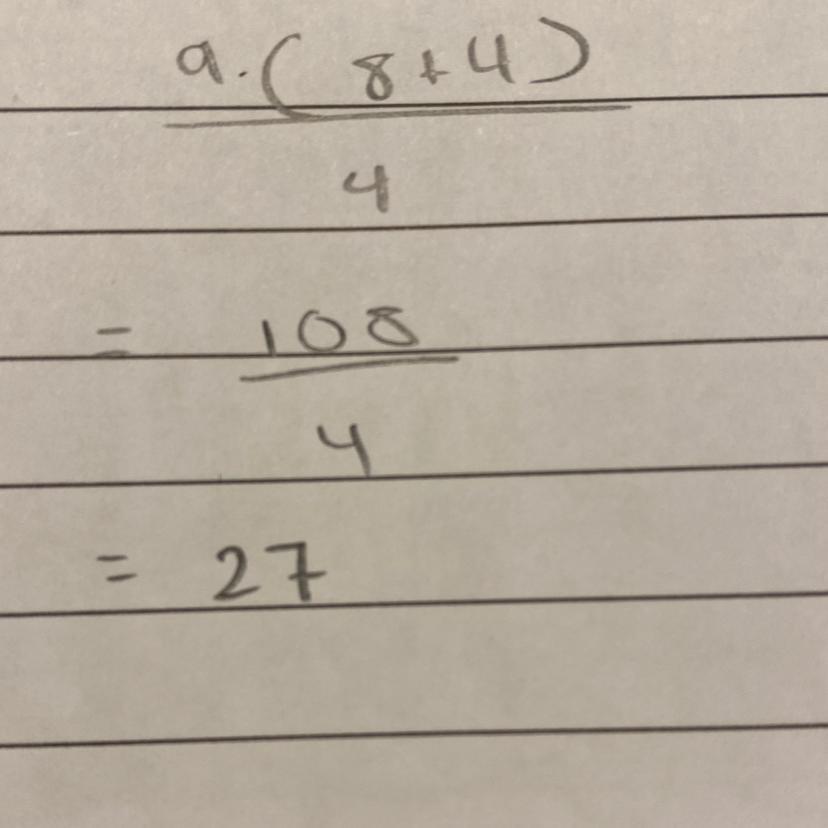 9.(8+4)
4
= 108
4
= 27